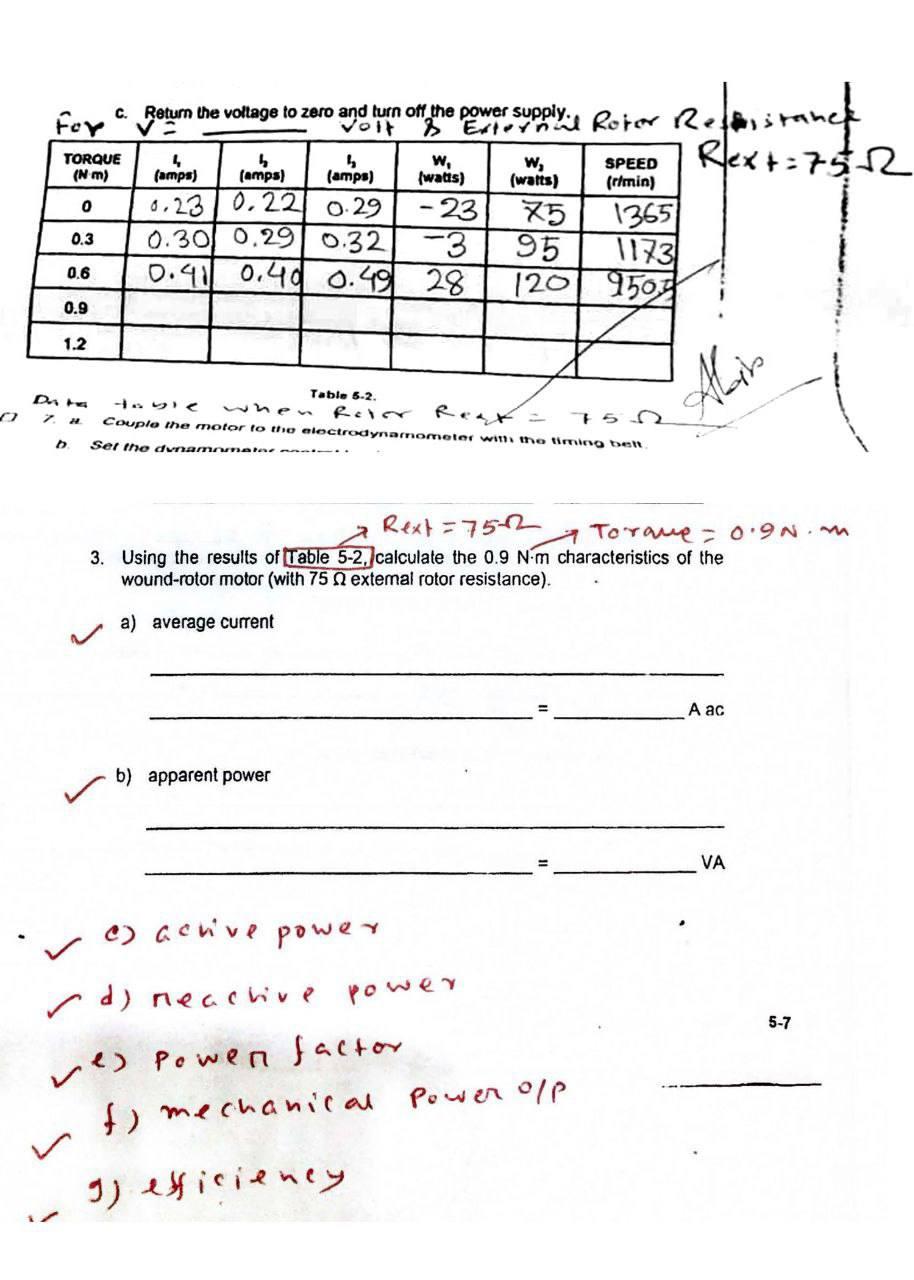 c. Return the voltage to zero and turn off the power supply.
For V = ________ Volt & External Rotor Ressistance
Rext = 75 Ω
TORQUE (N·m) I₁ (amps) I₂ (amps) I₃ (amps) W₁ (watts) W₂ (watts) SPEED (r/min)
0 0.23 0.22 0.29 -23 75 1365
0.3 0.30 0.29 0.32 -3 95 1173
0.6 0.41 0.40 0.49 28 120 950.5
0.9
1.2
Table 5-2.
Data table when Rotor Rext = 75 Ω
7. a. Couple the motor to the electrodynamometer with the timing belt.
b. Set the dynamometer
Rext = 75 Ω Torque = 0.9 N.m
3. Using the results of Table 5-2, calculate the 0.9 N·m characteristics of the
wound-rotor motor (with 75 Ω external rotor resistance).
a) average current
= ________ A ac
b) apparent power
= ________ VA
c) active power
d) reactive power
5-7
e) Power factor
f) mechanical Power o/p
g) efficiency